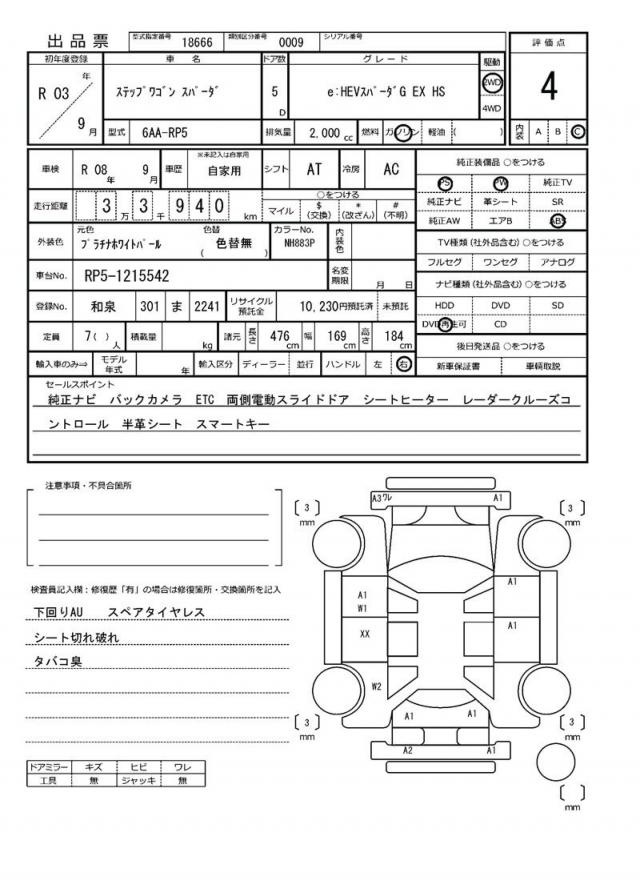 出品票 型式指定番号 18666 類別区分番号 0009 シリアル番号
初年度登録 車名 ドア数 グレード 駆動 評価点
R 03 年 9 月 ステップワゴン スパーダ 5 D e:HEVスパーダG EX HS 2WD 4WD 4
型式 6AA-RP5 排気量 2,000 cc 燃料 ガソリン 軽油 ( ) 内装 A B C
車検 R 08 年 9 月 車歴 ※未記入は自家用 自家用 シフト AT 冷房 AC
走行距離 3 万 3 千 9 4 0 km ○をつける マイル $ (交換) * (改ざん) # (不明)
外装色 元色 プラチナホワイトパール 色替 ( 色替無 ) カラーNo. NH883P 内装色
車台No. RP5-1215542 名変期限 月 日
登録No. 和泉 301 ま 2241 リサイクル預託金 10,230円預託済 未預託
定員 7( ) 人 積載量 kg 諸元 長さ 476 cm 幅 169 cm 高さ 184 cm
輸入車のみ⇒ モデル年式 年 輸入区分 ディーラー 並行 ハンドル 左 右
純正装備品 ○をつける
PS PW 純正TV
純正ナビ 革シート SR
純正AW エアB ABS
TV種類 (社外品含む) ○をつける
フルセグ ワンセグ アナログ
ナビ種類 (社外品含む) ○をつける
HDD DVD SD
DVD再生可 CD
後日発送品 ○をつける
新車保証書 車輌取説
セールスポイント
純正ナビ バックカメラ ETC 両側電動スライドドア シートヒーター レーダークルーズコ
ントロール 半革シート スマートキー
注意事項・不具合箇所
検査員記入欄：修復歴「有」の場合は修復箇所・交換箇所を記入
下回りAU スペアタイヤレス
シート切れ破れ
タバコ臭
ドアミラー キズ ヒビ ワレ
工具 無 ジャッキ 無
A3ワレ A1
[ 3 ] mm [ 3 ] mm
A1
A1
W1
XX A1
W2
A1 A1
[ 3 ] mm [ 3 ] mm
A2 A1
[ ] mm